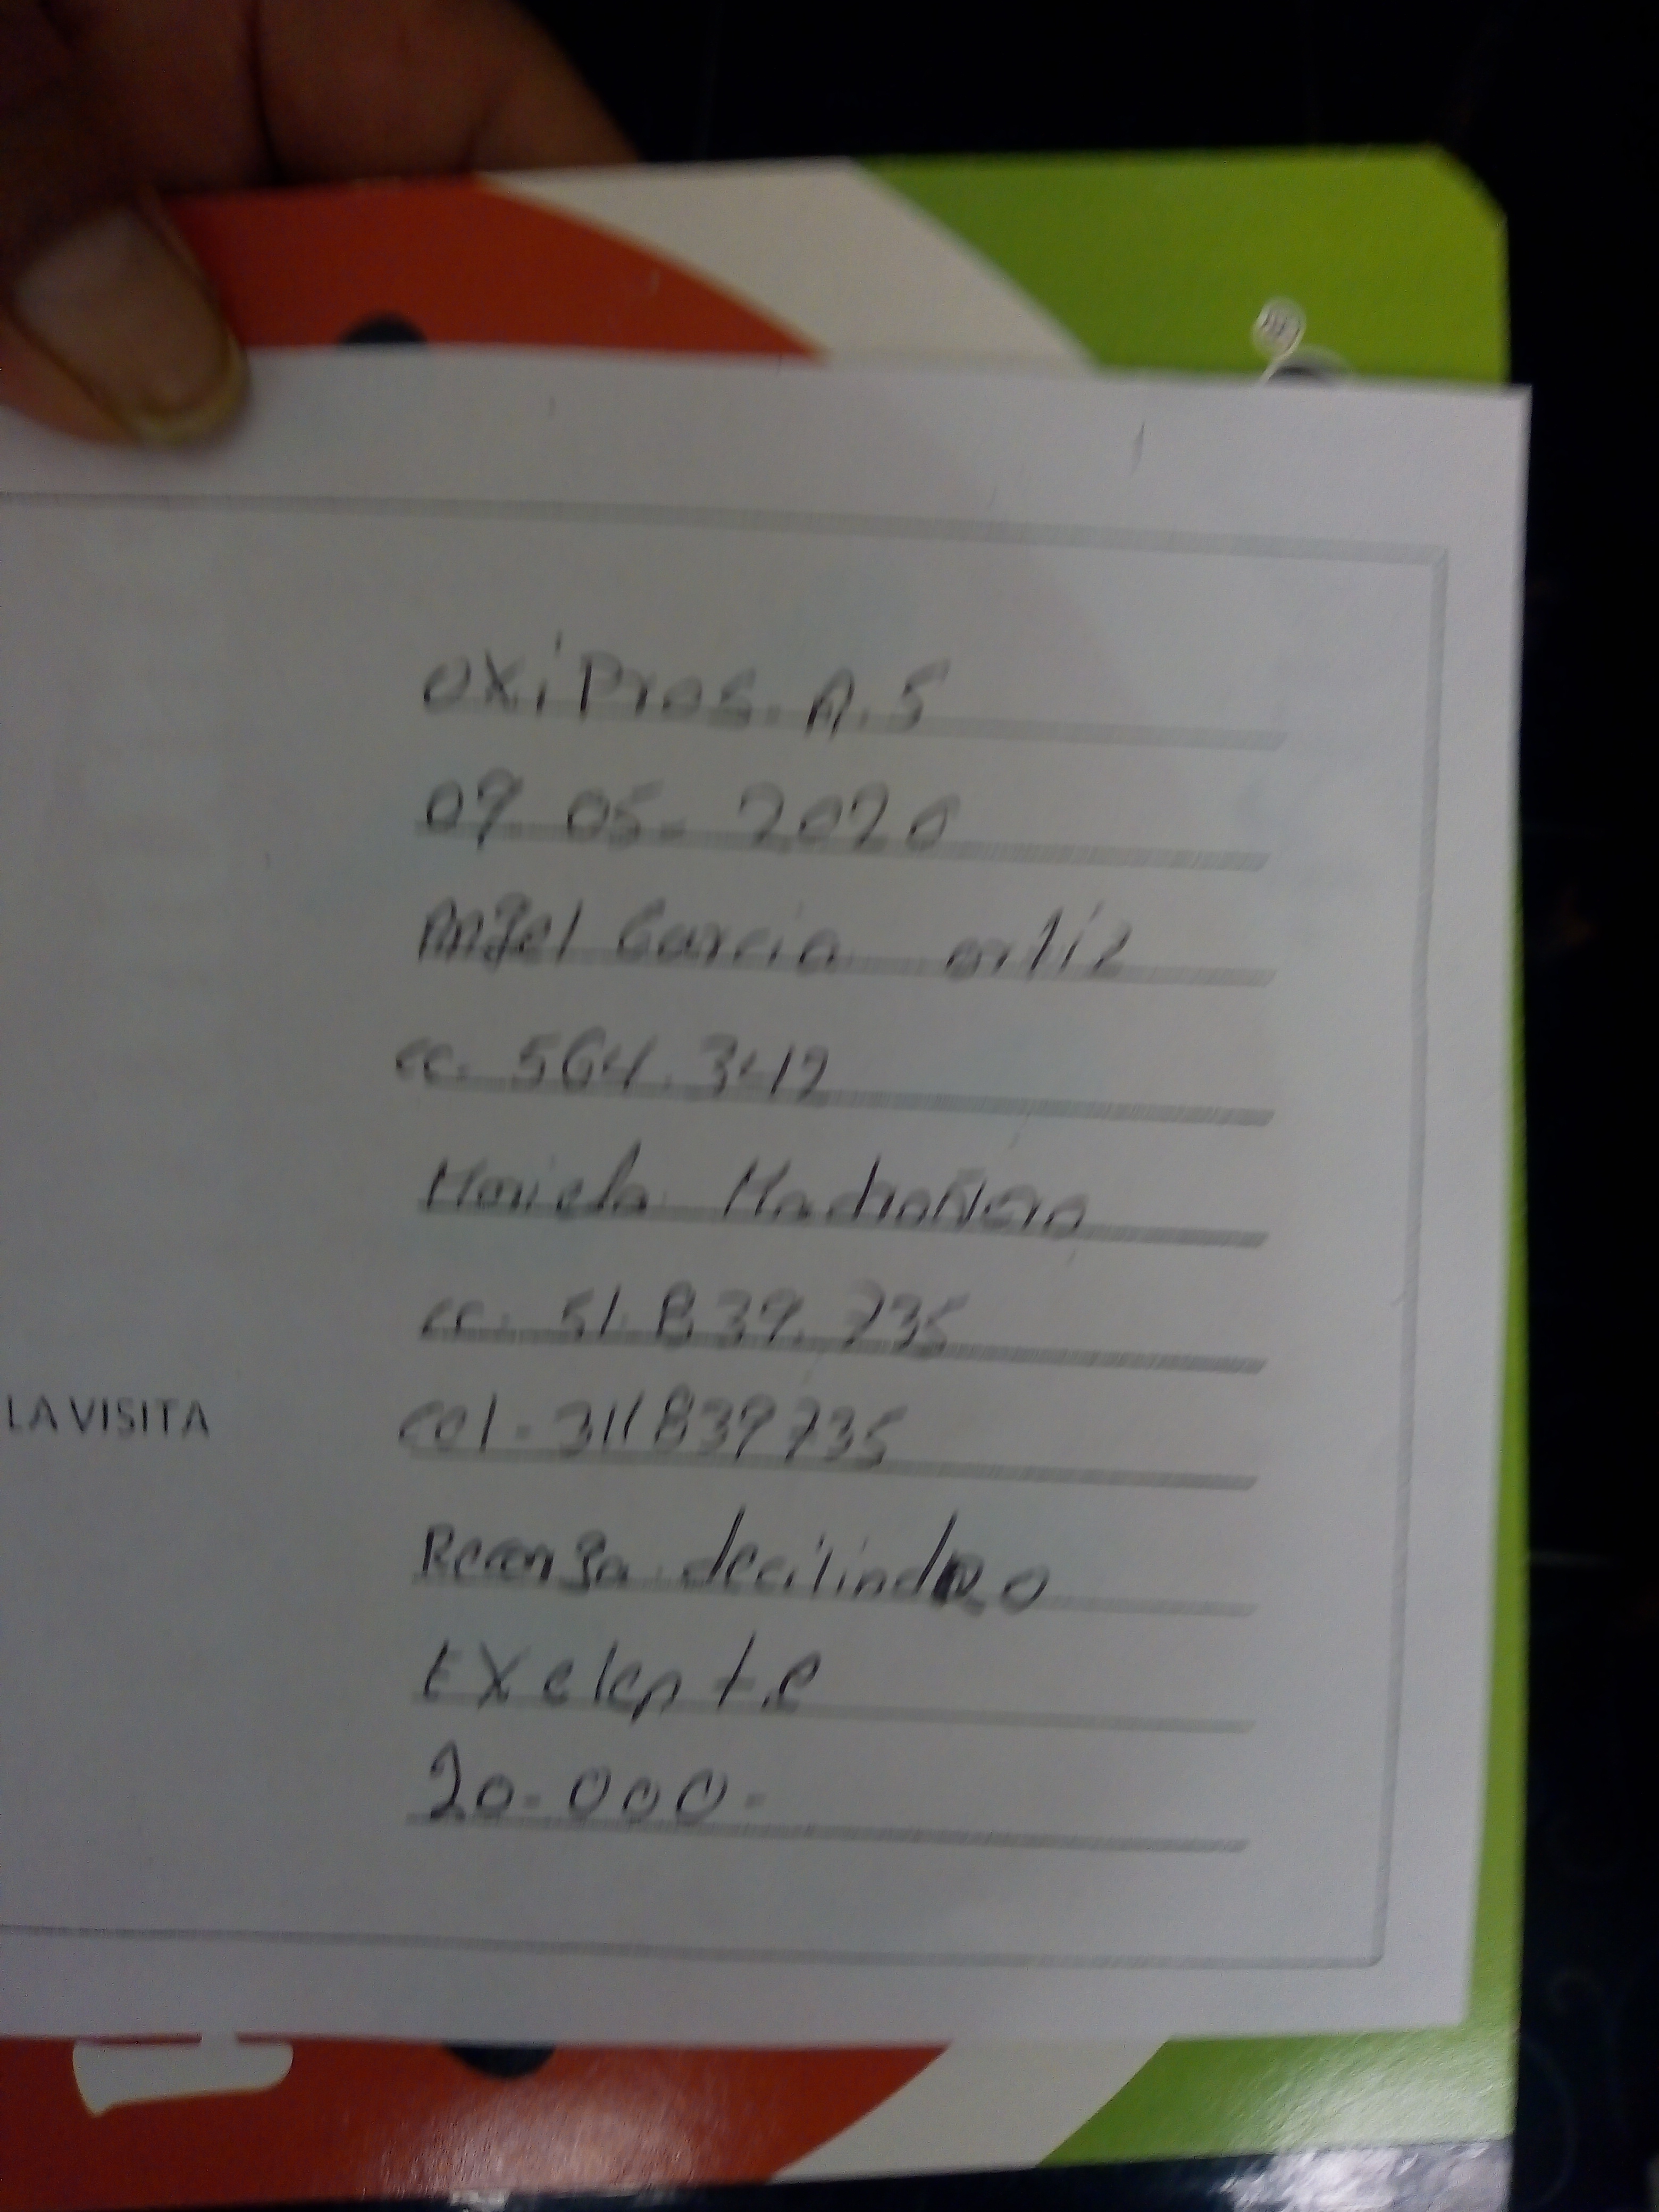 oxiPros. A.S
09 05- 2020
Angel Garcia ortiz
cc. 564.342
Mariela MadroÑero
cc. 51.839.735
LA VISITA
cel- 311839735
Recarga decilindRo
Exelente
20-000-